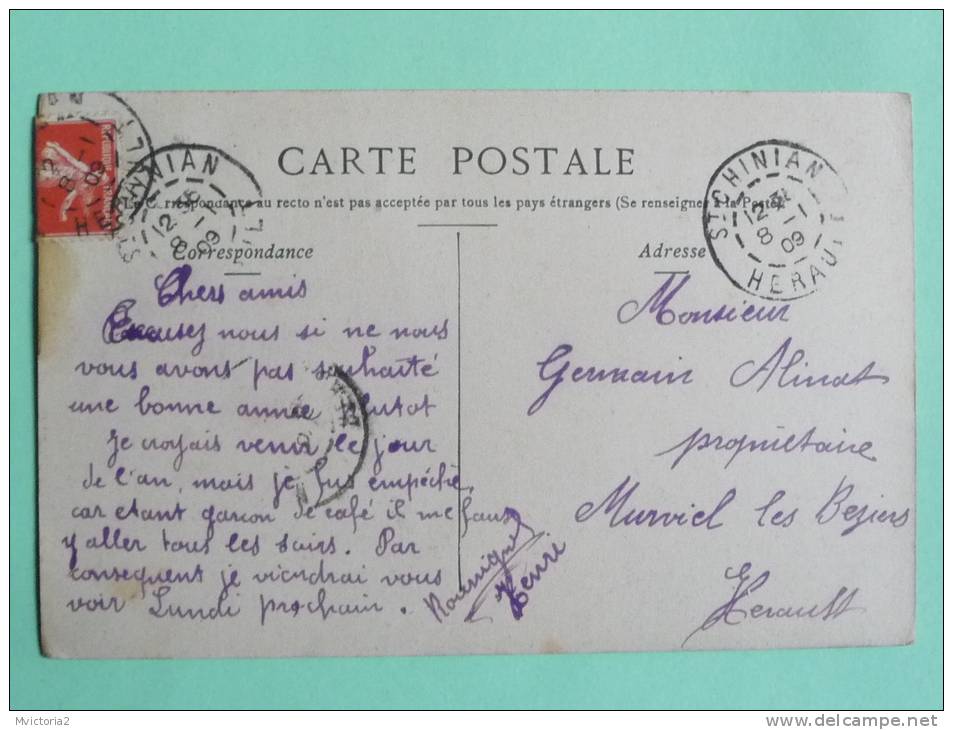 CARTE POSTALE
La Correspondance au recto n'est pas acceptée par tous les pays étrangers (Se renseigner à la Poste)
Correspondance
Chers amis
Excusez nous si ne nous
vous avons pas souhaité
une bonne année plutot
Je croyais venir le jour
de l'an, mais je fus empéché
car etant garcon de café il me faus
y aller tous les soirs. Par
consequent je viendrai vous
voir Lundi prochain.
Henri
Adresse
Monsieur
Germain Alinat
propriétaire
Murviel les Beziers
Herault
ST CHINIAN
12 8-1 09
HERAULT
ST CHINIAN
8-1 09
REPUBLIQUE FRANCAISE
Mvictoria2
www.delcampe.net